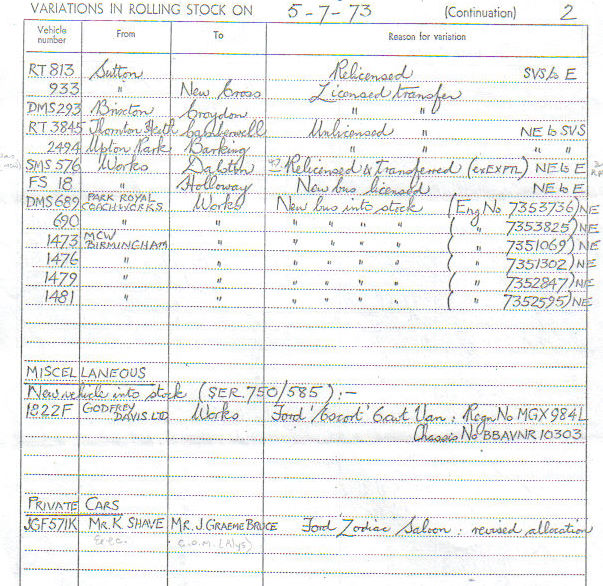 VARIATIONS IN ROLLING STOCK ON 5-7-73 (Continuation) 2
Vehicle number From To Reason for variation
RT 813 Sutton Relicensed SVS to E
933 " New Cross Licensed transfer
DMS 293 Brixton Croydon " " "
RT 3845 Thornton Heath Camberwell Unlicensed " NE to SVS
2494 Upton Park Barking " " " "
SMS 576 Works Dalston Relicensed & transferred (ex EXPTL) NE to E
FS 18 " Holloway New bus licensed NE to E
DMS 689 PARK ROYAL COACHWORKS Works New bus into stock (Eng No 7353736) NE
690 " " " " " " ( " 7353825) NE
1473 MCW BIRMINGHAM " " " " " ( " 7351069) NE
1476 " " " " " " ( " 7351302) NE
1479 " " " " " " ( " 7352847) NE
1481 " " " " " " ( " 7352595) NE
MISCELLANEOUS
New vehicle into stock (SER. 750/585) :-
1822F GODFREY DAVIS LTD Works Ford 'Escort' 6cwt Van : Regn No MGX 984L
Chassis No BBAVNR 10303
PRIVATE CARS
JGF571K MR. K SHAVE MR. J. GRAEME BRUCE Ford Zodiac Saloon : revised allocation
Exec. C.O.M. (Rlys)